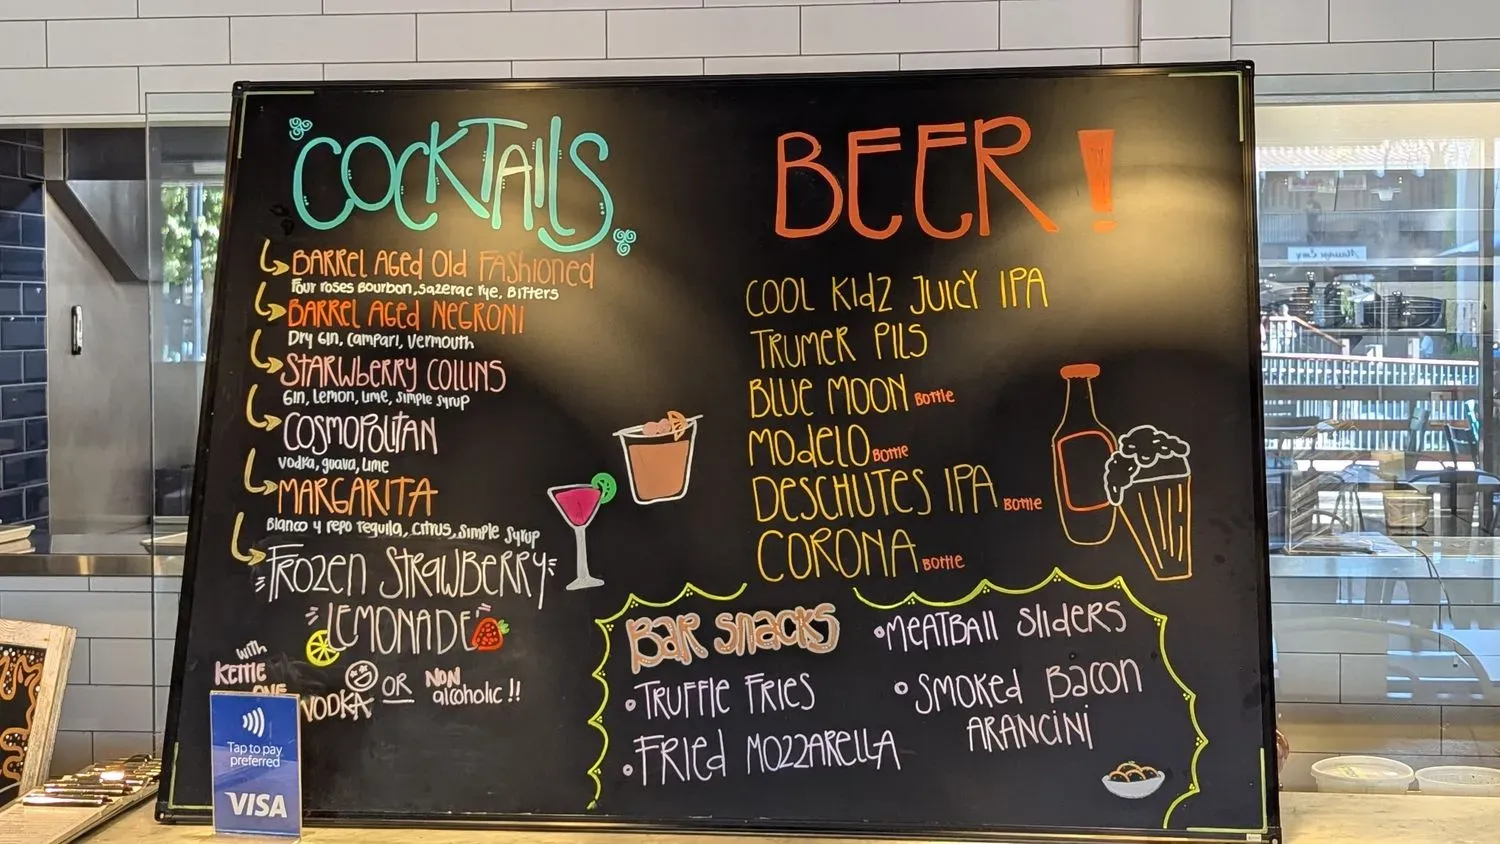 COCKTAILS
BARREL AGED OLD FASHIONED
Four roses Bourbon, Sazerac rye, Bitters
BARREL AGED NEGRONI
Dry Gin, Campari, Vermouth
STARWBERRY COLLINS
Gin, Lemon, Lime, Simple Syrup
COSMOPOLITAN
Vodka, guava, Lime
MARGARITA
Blanco y repo tequila, Citrus, Simple Syrup
FROZEN STRAWBERRY
LEMONADE
with
KETTLE
ONE
VODKA OR NON
alcoholic !!
Tap to pay
preferred
VISA
BEER!
COOL KIDZ JUICY IPA
TRUMER PILS
BLUE MOON BOTTLE
MODELO BOTTLE
DESCHUTES IPA BOTTLE
CORONA BOTTLE
BAR SNACKS
•TRUFFLE FRIES
•FRIED MOZZARELLA
•MEATBALL SLIDERS
•SMOKED BACON
ARANCINI